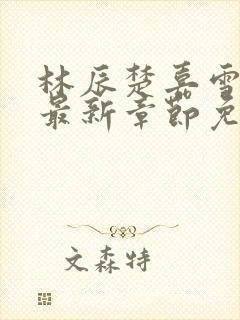 林辰楚嘉雪
最新章节免
文森特